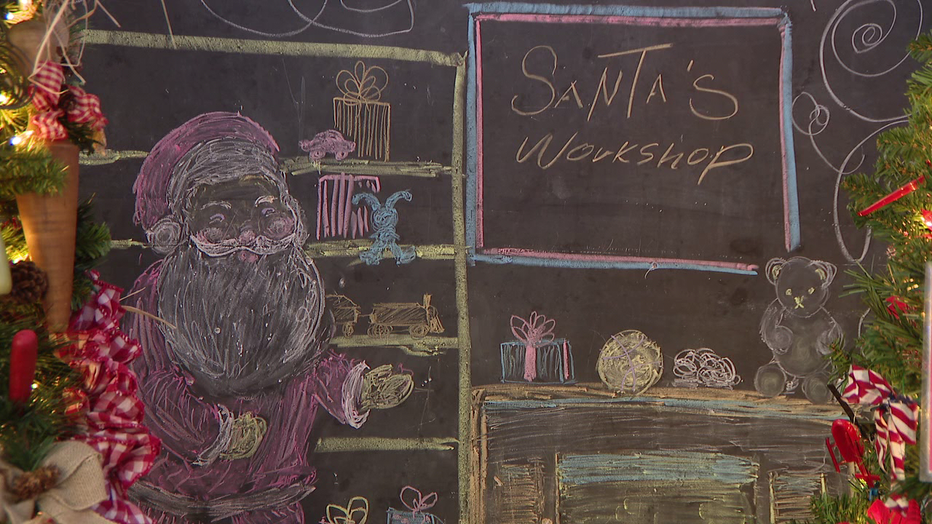 Santa's
Workshop